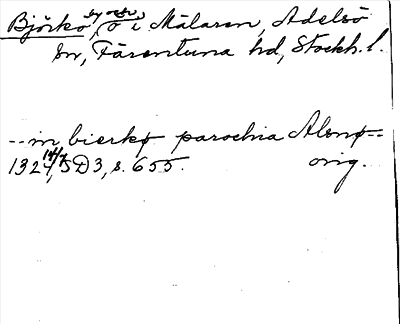 Björkö, by och ö i Mälaren, Adelsö
sn, Färentuna hd, Stockh. l.
--in bierkø parochia Alsnø--
1324 14/7, SD 3, s. 655. orig.